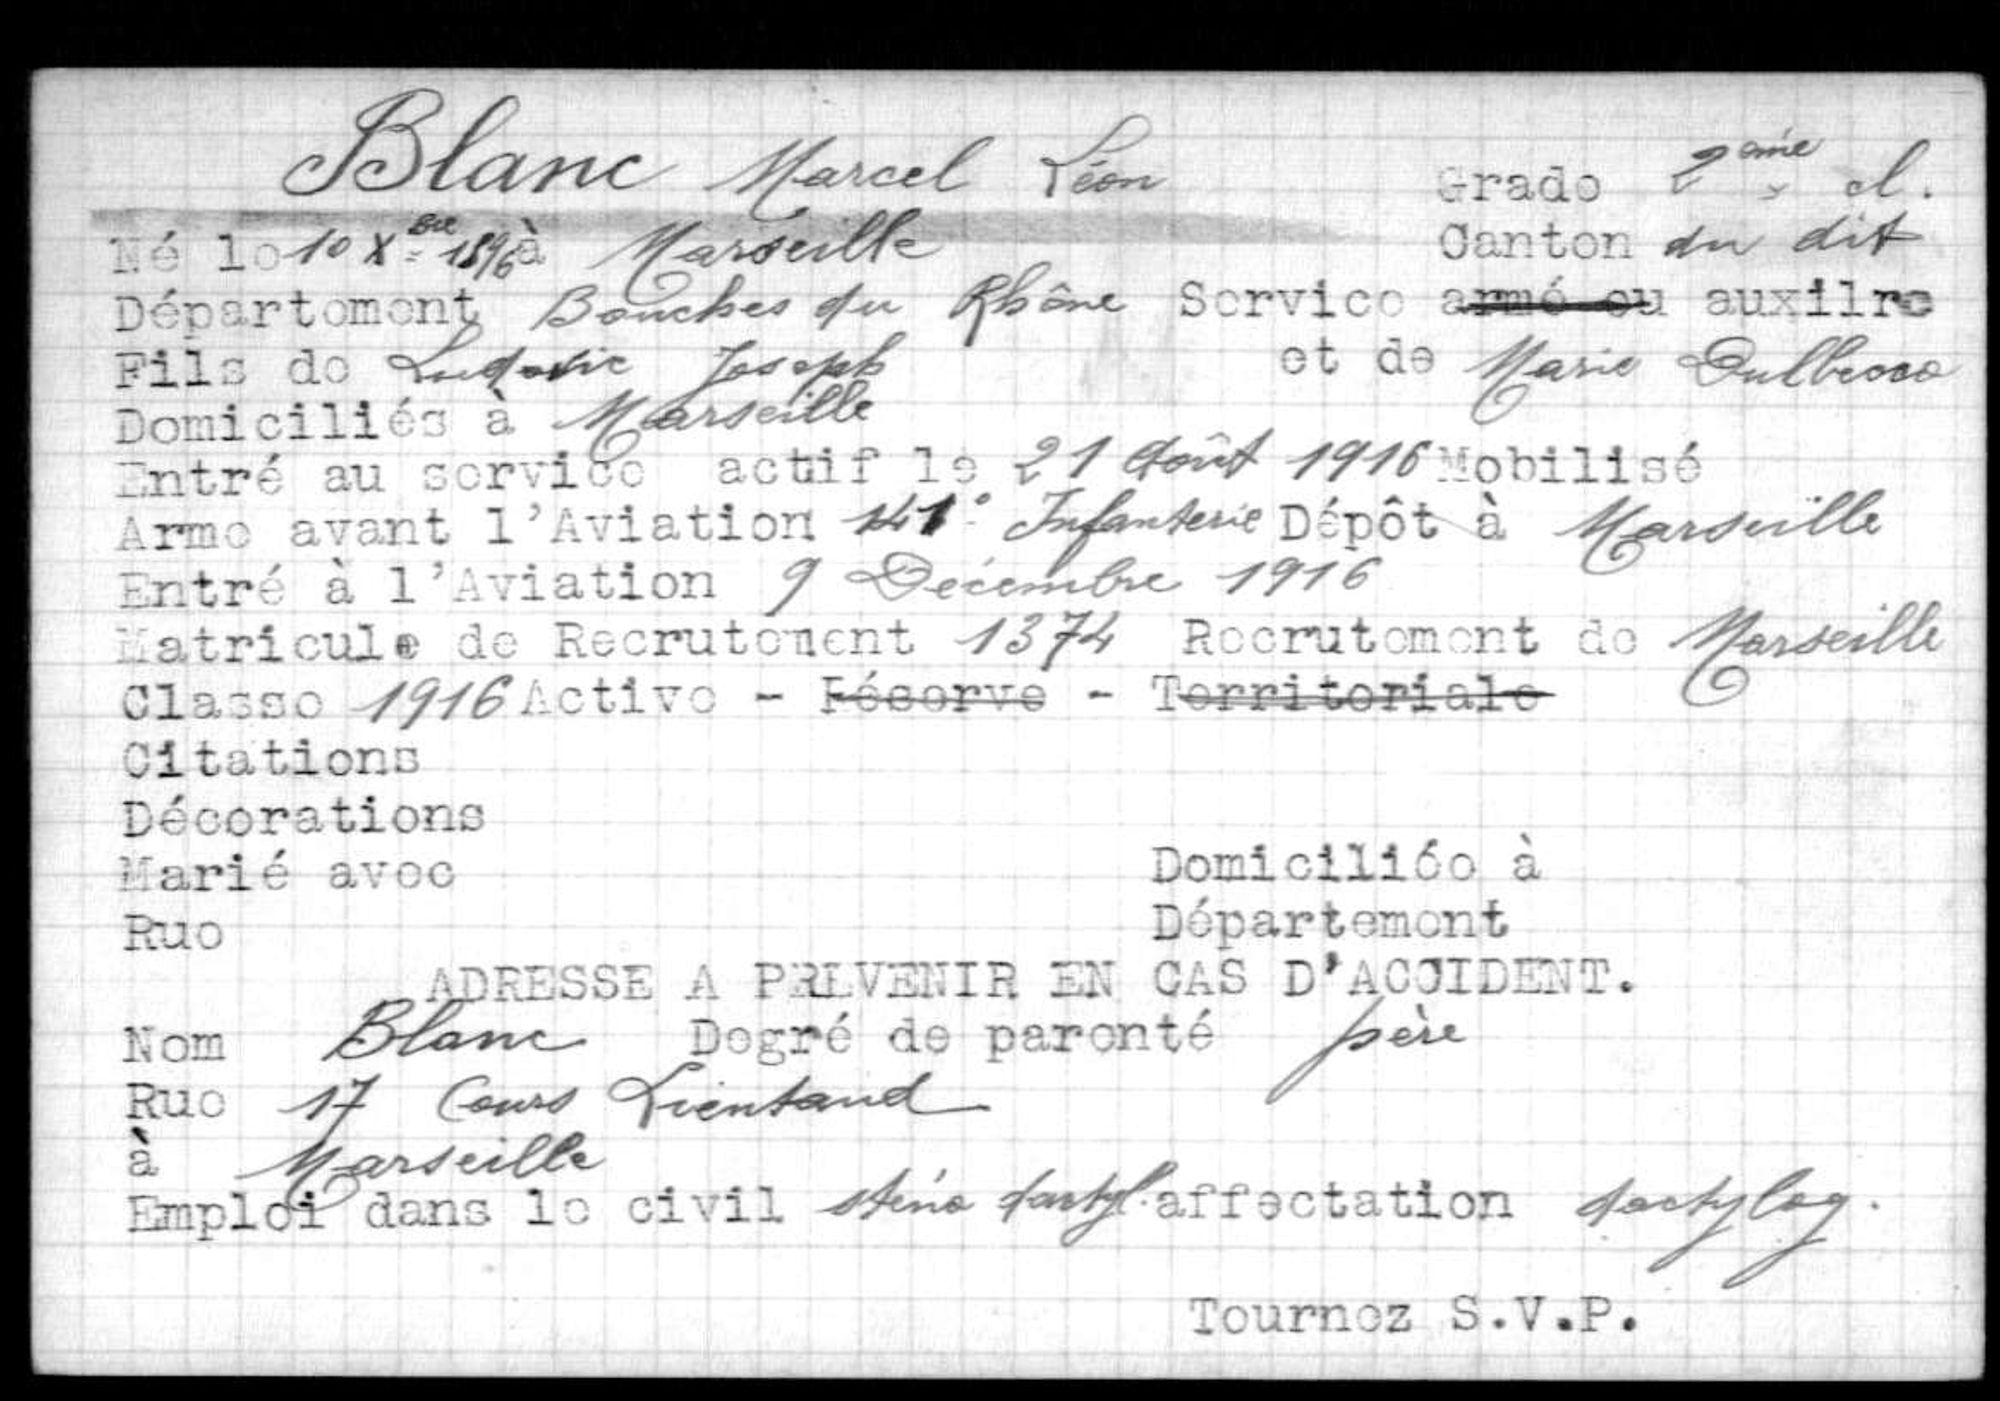 Blanc Marcel Léon Grade 2ème cl.
Né le 10 Xbre 1896 à Marseille Canton du dit
Département Bouches du Rhône Service armé ou auxilre
Fils de Ludovic Joseph et de Marie Dulbecco
Domiciliés à Marseille
Entré au service actif le 21 Août 1916 Mobilisé
Arme avant l'Aviation 141° Infanterie Dépôt à Marseille
Entré à l'Aviation 9 Décembre 1916
Matricule de Recrutement 1374 Recrutement de Marseille
Classe 1916 Active - Réserve - Territoriale
Citations
Décorations
Marié avec Domiciliée à
Rue Département
ADRESSE A PREVENIR EN CAS D'ACCIDENT.
Nom Blanc Degré de parenté père
Rue 17 Cours Lieutaud
à Marseille
Emploi dans le civil sténo dactyl. affectation dactylog.
Tournez S.V.P.